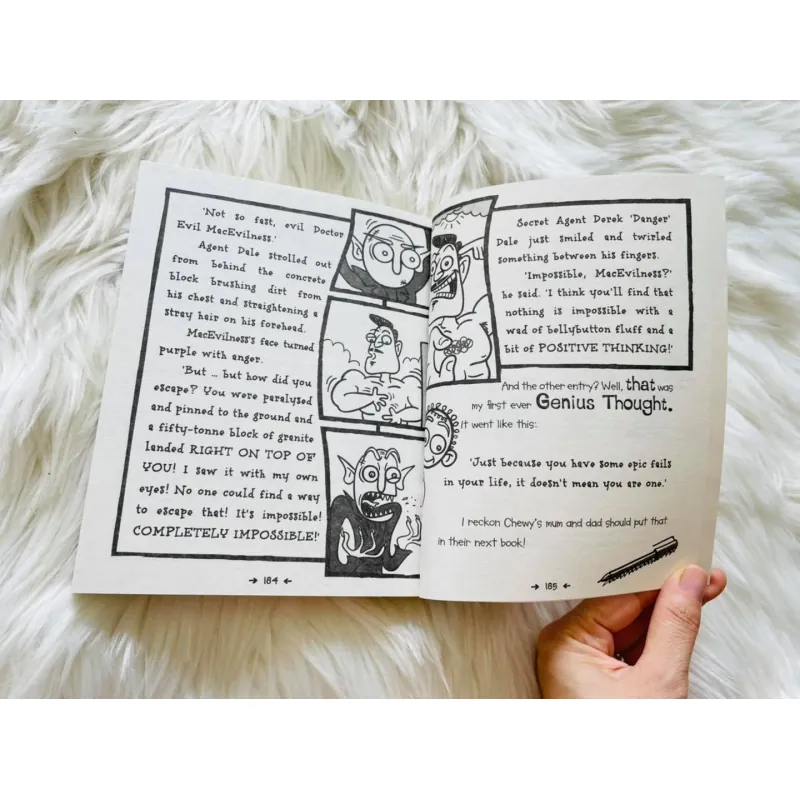 'Not so fast, evil Doctor
Evil MacEvilness.'
Agent Dale strolled out
from behind the concrete
block brushing dirt from
his chest and straightening a
stray hair on his forehead.
MacEvilness's face turned
purple with anger.
'But ... but how did you
escape? You were paralysed
and pinned to the ground and
a fifty-tonne block of granite
landed RIGHT ON TOP OF
YOU! I saw it with my own
eyes! No one could find a way
to escape that! It's impossible!
COMPLETELY IMPOSSIBLE!'
→ 184 ←
Secret Agent Derek 'Danger'
Dale just smiled and twirled
something between his fingers.
'Impossible, MacEvilness?'
he said. 'I think you'll find that
nothing is impossible with a
wad of bellybutton fluff and a
bit of POSITIVE THINKING!'
And the other entry? Well, that was
my first ever Genius Thought.
It went like this:
'Just because you have some epic fails
in your life, it doesn't mean you are one.'
I reckon Chewy's mum and dad should put that
in their next book!
→ 185 ←